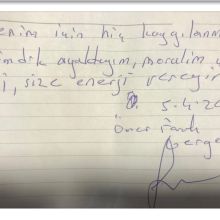 enim için hiç kaygılanm
imdik ayaktayım, moralim y
i, size enerji vereyir
5.4.20
Ömer Faruk
Gerge